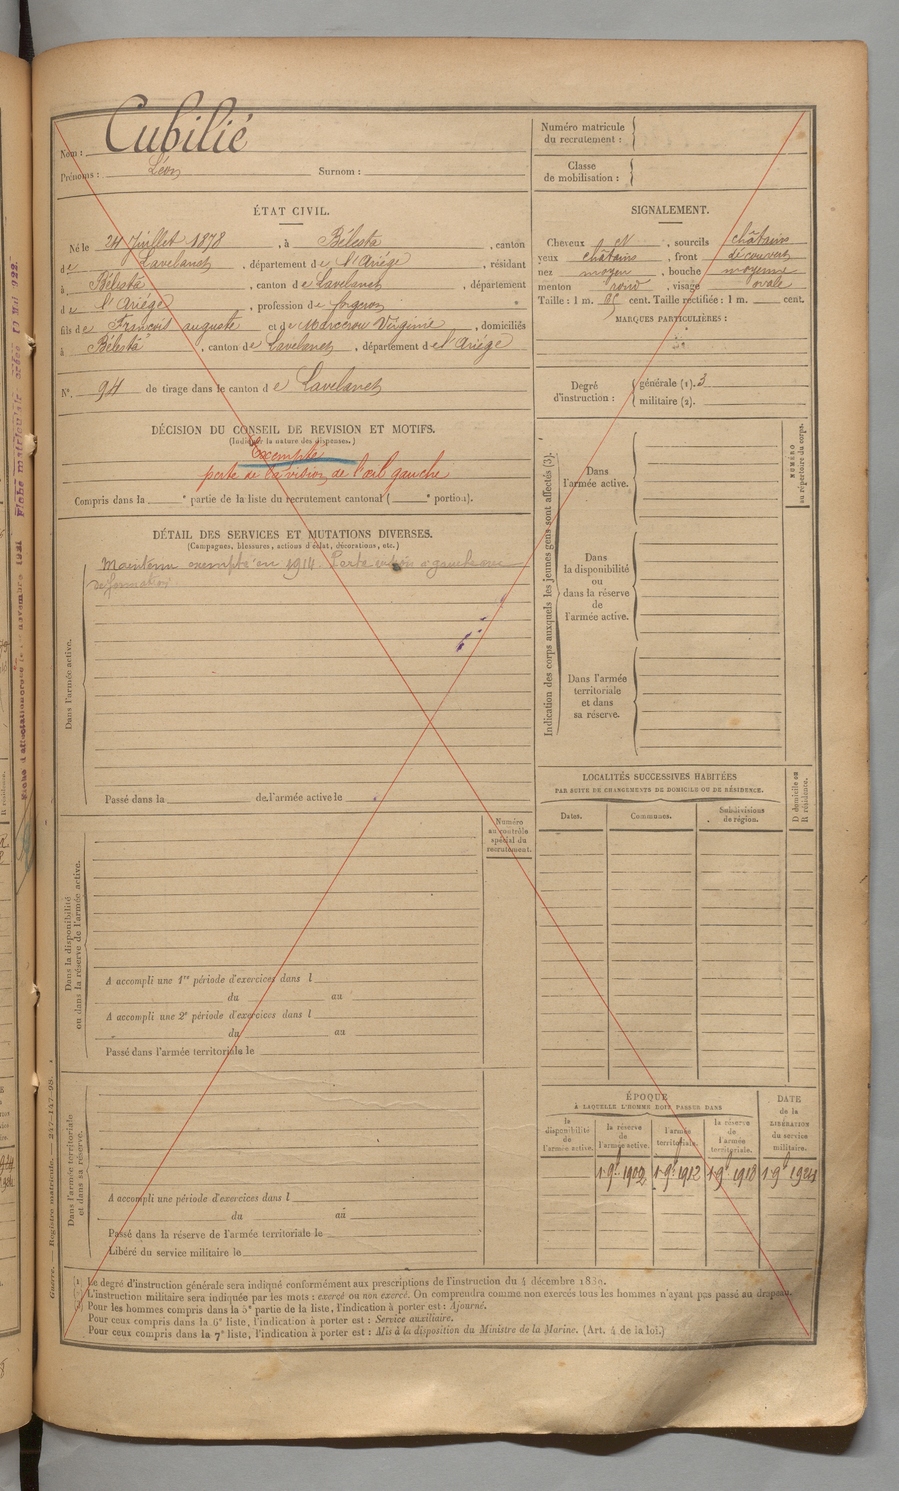 Nom : Cubilié
Prénoms : Léon Surnom :
Numéro matricule
du recrutement :
Classe
de mobilisation :
ÉTAT CIVIL.
Né le 24 Juillet 1878, à Bélesta, canton
de Lavelanet, département de l'Ariége, résidant
à Bélesta, canton de Lavelanet, département
de l'Ariége, profession de forgeron
fils de François auguste et de Marcerou Virginie, domiciliés
à Bélesta, canton de Lavelanet, département de l'Ariége
N° 94 de tirage dans le canton de Lavelanet
SIGNALEMENT.
Cheveux et, sourcils châtains
yeux châtains, front découvert
nez moyen, bouche moyenne
menton rond, visage ovale
Taille : 1 m. cent. Taille rectifiée : 1 m. cent.
MARQUES PARTICULIÈRES :
Degré
d'instruction :
générale (1). 3
militaire (2).
DÉCISION DU CONSEIL DE REVISION ET MOTIFS.
(Indiquer la nature des dispenses.)
Exempté
perte de la vision de l'œil gauche
Compris dans la e partie de la liste du recrutement cantonal ( e portion).
DÉTAIL DES SERVICES ET MUTATIONS DIVERSES.
(Campagnes, blessures, actions d'éclat, décorations, etc.)
Maintenu exempté en 1914 Perte vision à gauche
déformation
Dans l'armée active.
Passé dans la de l'armée active le
Indication des corps auxquels les jeunes gens sont affectés (3).
Dans
l'armée active.
Dans
la disponibilité
ou
dans la réserve
de
l'armée active.
Dans l'armée
territoriale
et dans
sa réserve.
NUMÉRO
au répertoire du corps.
LOCALITÉS SUCCESSIVES HABITÉES
PAR SUITE DE CHANGEMENTS DE DOMICILE OU DE RÉSIDENCE.
Dates.
Communes.
Subdivisions
de région.
D domicile ou
R résidence.
Numéro
au contrôle
spécial du
recrutement.
Dans la disponibilité
ou dans la réserve de l'armée active.
A accompli une 1re période d'exercices dans l
du au
A accompli une 2e période d'exercices dans l
du au
Passé dans l'armée territoriale le
Dans l'armée territoriale
et dans sa réserve.
A accompli une période d'exercices dans l
du au
Passé dans la réserve de l'armée territoriale le
Libéré du service militaire le
ÉPOQUE
À LAQUELLE L'HOMME DOIT PASSER DANS
la
disponibilité
de
l'armée active.
la réserve
de
l'armée active.
l'armée
territoriale.
la réserve
de
l'armée
territoriale.
DATE
de la
LIBÉRATION
du service
militaire.
1 9bre 1902 1 9bre 1912 1 9bre 1918 1 9bre 1924
(1) Le degré d'instruction générale sera indiqué conformément aux prescriptions de l'instruction du 4 décembre 1889.
(2) L'instruction militaire sera indiquée par les mots : exercé ou non exercé. On comprendra comme non exercés tous les hommes n'ayant pas passé au drapeau.
(3) Pour les hommes compris dans la 5e partie de la liste, l'indication à porter est : Ajourné.
Pour ceux compris dans la 6e liste, l'indication à porter est : Service auxiliaire.
Pour ceux compris dans la 7e liste, l'indication à porter est : Mis à la disposition du Ministre de la Marine. (Art. 4 de la loi.)
Guerre. — Registre matricule. — 247-147-98.